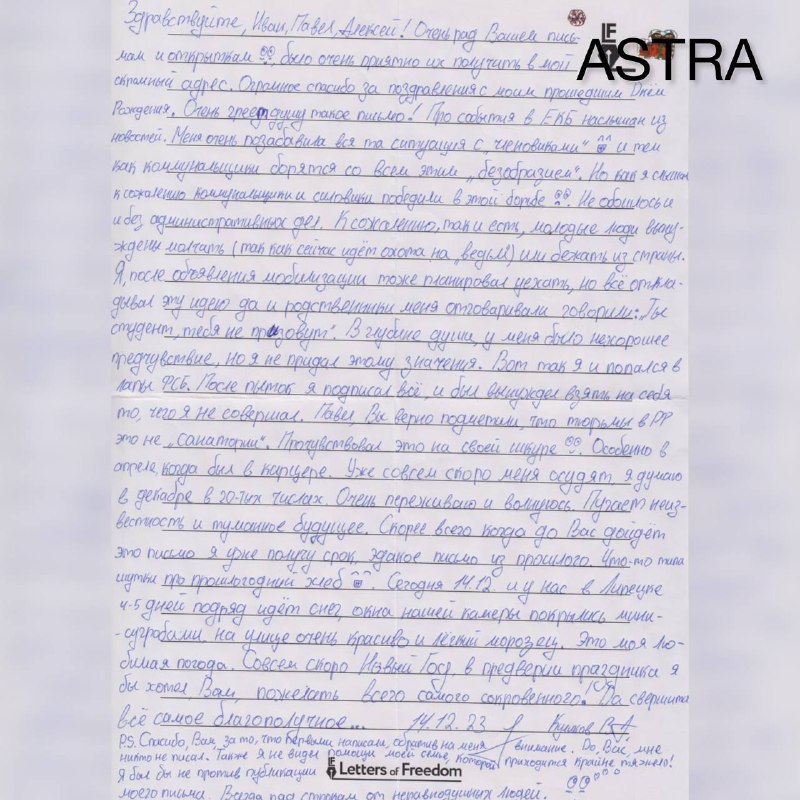 Здравствуйте, Иван, Павел, Алексей! Очень рад Вашем пись-
мам и открыткам, было очень приятно их получить в мой
скромный адрес. Огромное спасибо за поздравления с моим прошедшим Днём
Рождения. Очень греет душу такое письмо! Про события в ЕКБ наслышан из
новостей. Меня очень позабавила вся та ситуация с „членовиками“ и тем
как коммунальщики борятся со всем этим „безобразием“. Но как я слышал
к сожалению коммунальщики и силовики победили в этой борьбе. Не обошлось и
и без административных дел. К сожалению, так и есть, молодые люди выну-
ждены молчать (так как сейчас идёт охота на „ведьм“) или бежать из страны.
Я, после объявления мобилизации тоже планировал уехать, но всё откла-
дывал эту идею да и родственники меня отговаривали говорили: „Ты
студент, тебя не призовут“. В глубине души, у меня было нехорошее
предчувствие, но я не придал этому значения. Вот так я и попался в
лапы ФСБ. После пыток я подписал всё, и был вынужден взять на себя
то, чего я не совершал. Павел, Вы верно подметили, что тюрьмы в РФ
это не „санатории“. Прочувствовал это на своей шкуре. Особенно в
апреле, когда был в карцере. Уже совсем скоро меня осудят, я думаю
в декабре в 20-тых числах. Очень переживаю и волнуюсь. Пугает неиз-
вестность и туманное будущее. Скорее всего когда до Вас дойдёт
это письмо я уже получу срок, эдакое письмо из прошлого. Что-то типа
шутки про прошлогодний хлеб. Сегодня 14.12. и у нас в Липецке
4-5 дней подряд идёт снег, окна нашей камеры покрылись мини-
-сугробами, на улице очень красиво и лёгкий морозец. Это моя лю-
бимая погода. Совсем скоро Новый Год, в предверии праздника я
бы хотел Вам, пожелать всего самого сокровенного! Да свершится
всё самое благополучное... 14.12.23
P.S. Спасибо, Вам, за то, что первыми написали, обратив на меня внимание. До, Вас, мне
никто не писал. Также я не видел помощи моей семье, которой приходится крайне тяжело!
Я был бы не против публикации
моего письма. Всегда рад строкам от неравнодушных людей.
LF
ASTRA
LF Letters of Freedom